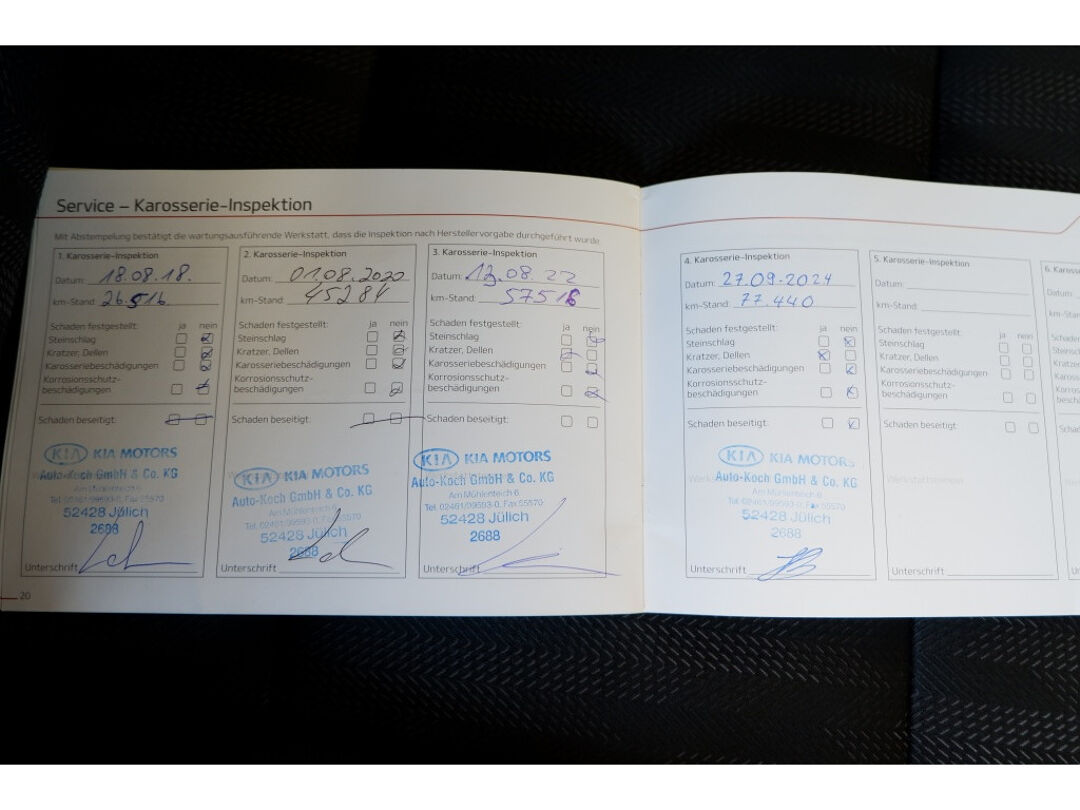 Service – Karosserie-Inspektion
Mit Abstempelung bestätigt die wartungsausführende Werkstatt, dass die Inspektion nach Herstellervorgabe durchgeführt wurde
1. Karosserie-Inspektion
Datum: 18.08.18.
km-Stand: 26.516
Schaden festgestellt: ja nein
Steinschlag
Kratzer, Dellen
Karosseriebeschädigungen
Korrosionsschutz-
beschädigungen
Schaden beseitigt:
KIA KIA MOTORS
Auto-Koch GmbH & Co. KG
Am Mühlenteich 6
Tel. 02461/09593-0, Fax 55570
52428 Jülich
2688
Unterschrift
2. Karosserie-Inspektion
Datum: 01.08.2020
km-Stand: 45284
Schaden festgestellt: ja nein
Steinschlag
Kratzer, Dellen
Karosseriebeschädigungen
Korrosionsschutz-
beschädigungen
Schaden beseitigt:
KIA KIA MOTORS
Auto-Koch GmbH & Co. KG
Am Mühlenteich 6
Tel. 02461/09593-0, Fax 55570
52428 Jülich
2688
Unterschrift
3. Karosserie-Inspektion
Datum: 08 22
km-Stand: 57516
Schaden festgestellt: ja nein
Steinschlag
Kratzer, Dellen
Karosseriebeschädigungen
Korrosionsschutz-
beschädigungen
Schaden beseitigt:
KIA KIA MOTORS
Auto-Koch GmbH & Co. KG
Am Mühlenteich 6
Tel. 02461/09593-0, Fax 55570
52428 Jülich
2688
Unterschrift
20
4. Karosserie-Inspektion
Datum: 27.09.2024
km-Stand: 77.440
Schaden festgestellt: ja nein
Steinschlag
Kratzer, Dellen
Karosseriebeschädigungen
Korrosionsschutz-
beschädigungen
Schaden beseitigt:
KIA KIA MOTORS
Auto-Koch GmbH & Co. KG
Am Mühlenteich 6
Tel. 02461/09593-0, Fax 55570
52428 Jülich
2688
Unterschrift
5. Karosserie-Inspektion
Datum:
km-Stand:
Schaden festgestellt: ja nein
Steinschlag
Kratzer, Dellen
Karosseriebeschädigungen
Korrosionsschutz-
beschädigungen
Schaden beseitigt:
Werkstattstempel
Unterschrift
6. Karosserie
Datum:
km-Stand
Schaden
Steinschla
Kratzer
Karosse
Korrosi
beschä
Schad